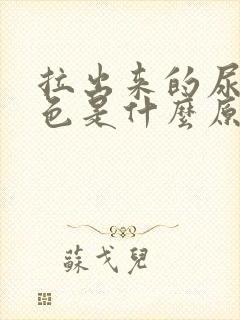 拉出来的尿
色是什麼原
蘇戈兒